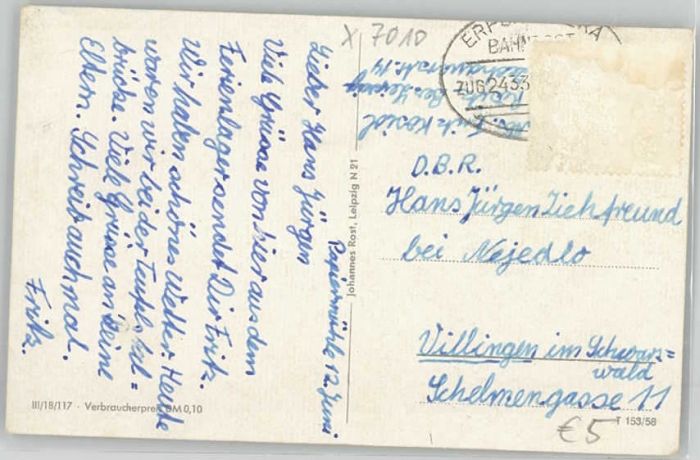 X 7010
Papiermühle 12. Juni
Lieber Hans Jürgen
Viele Grüsse von hier aus dem
Ferienlager sendet Dir Fritz.
Wir haben schönes Wetter. Heute
waren wir bei der Teufelskal=
brücke. Viele Grüsse an Deine
Eltern. Schreib auch mal.
Fritz.
III/18/117 · Verbraucherpreis DM 0,10
Johannes Rost, Leipzig N 21
BAHNPOST
ZUG 2433
Abs. Fritz Kösid
D.B.R.
Hans Jürgen Ziehfreund
bei Nejedlo
Villingen im Schwarz=
wald
Schelmengasse 11
T 153/58
€5